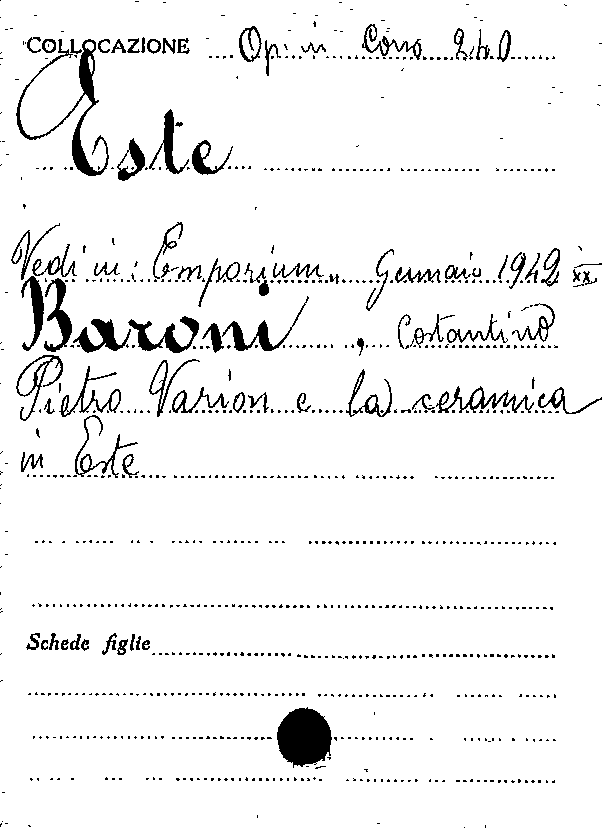 COLLOCAZIONE Op. in Corso 240
Este
Vedi in: Emporium,, Gennaio 1942 XX
Baroni, Costantino
Pietro Varion e la ceramica
in Este
Schede figlie